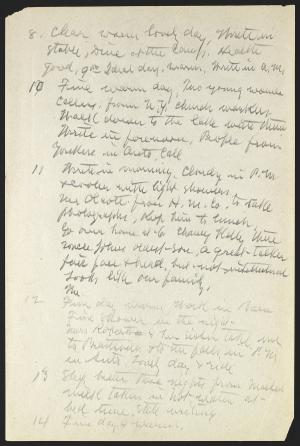 8. Clear warm lovely day, Write in
stable, Dine at the Camp. Health
good, gor Zard day. Warm. Write in a.m.
10 Fine warm day, Two young women
callers. from N.Y. church workers,
Walk down to the lake with them
Write in forenoon, People from
Yonkers in Auto, Call
11 Write in morning. Cloudy in P.M.
cooler with light showers,
Mr from H. M. Co, to take
photographs, Keep him to lunch,
Go over home at to Chancy Kelly, there
uncle John's Son, a great talker
fair face & head, but not intellectual
Looks like our family,
12 Fine day, warm. Work in Barn
Fine shower in the night.
Miss Robertson &
to & to the falls in P.M.
in Auto. Lovely day & ride
13 Slept better Two nights from
milk taken in hot water at
bed time, Still writing
14 Fine day & warm.